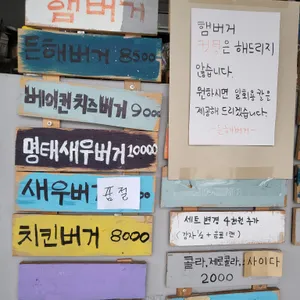 햄버거
든해버거 8500
베이컨치즈버거 9000
명태새우버거 10000
새우버거 품절
치킨버거 8000
햄버거
커팅은 해드리지
않습니다.
원하시면 일회용칼은
제공해 드리겠습니다.
세트 변경 4천원 추가
콜라, 제로콜라, 사이다
2000